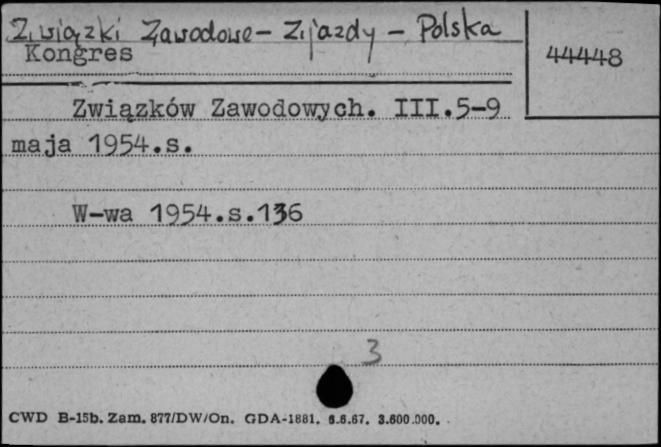 Związki Zawodowe - Zjazdy - Polska
Kongres
44448
Związków Zawodowych. III.5-9
maja 1954.s.
W-wa 1954.s.136
3
CWD B-15b. Zam. 877/DW/On. GDA-1881. 6.6.67. 3.600.000.